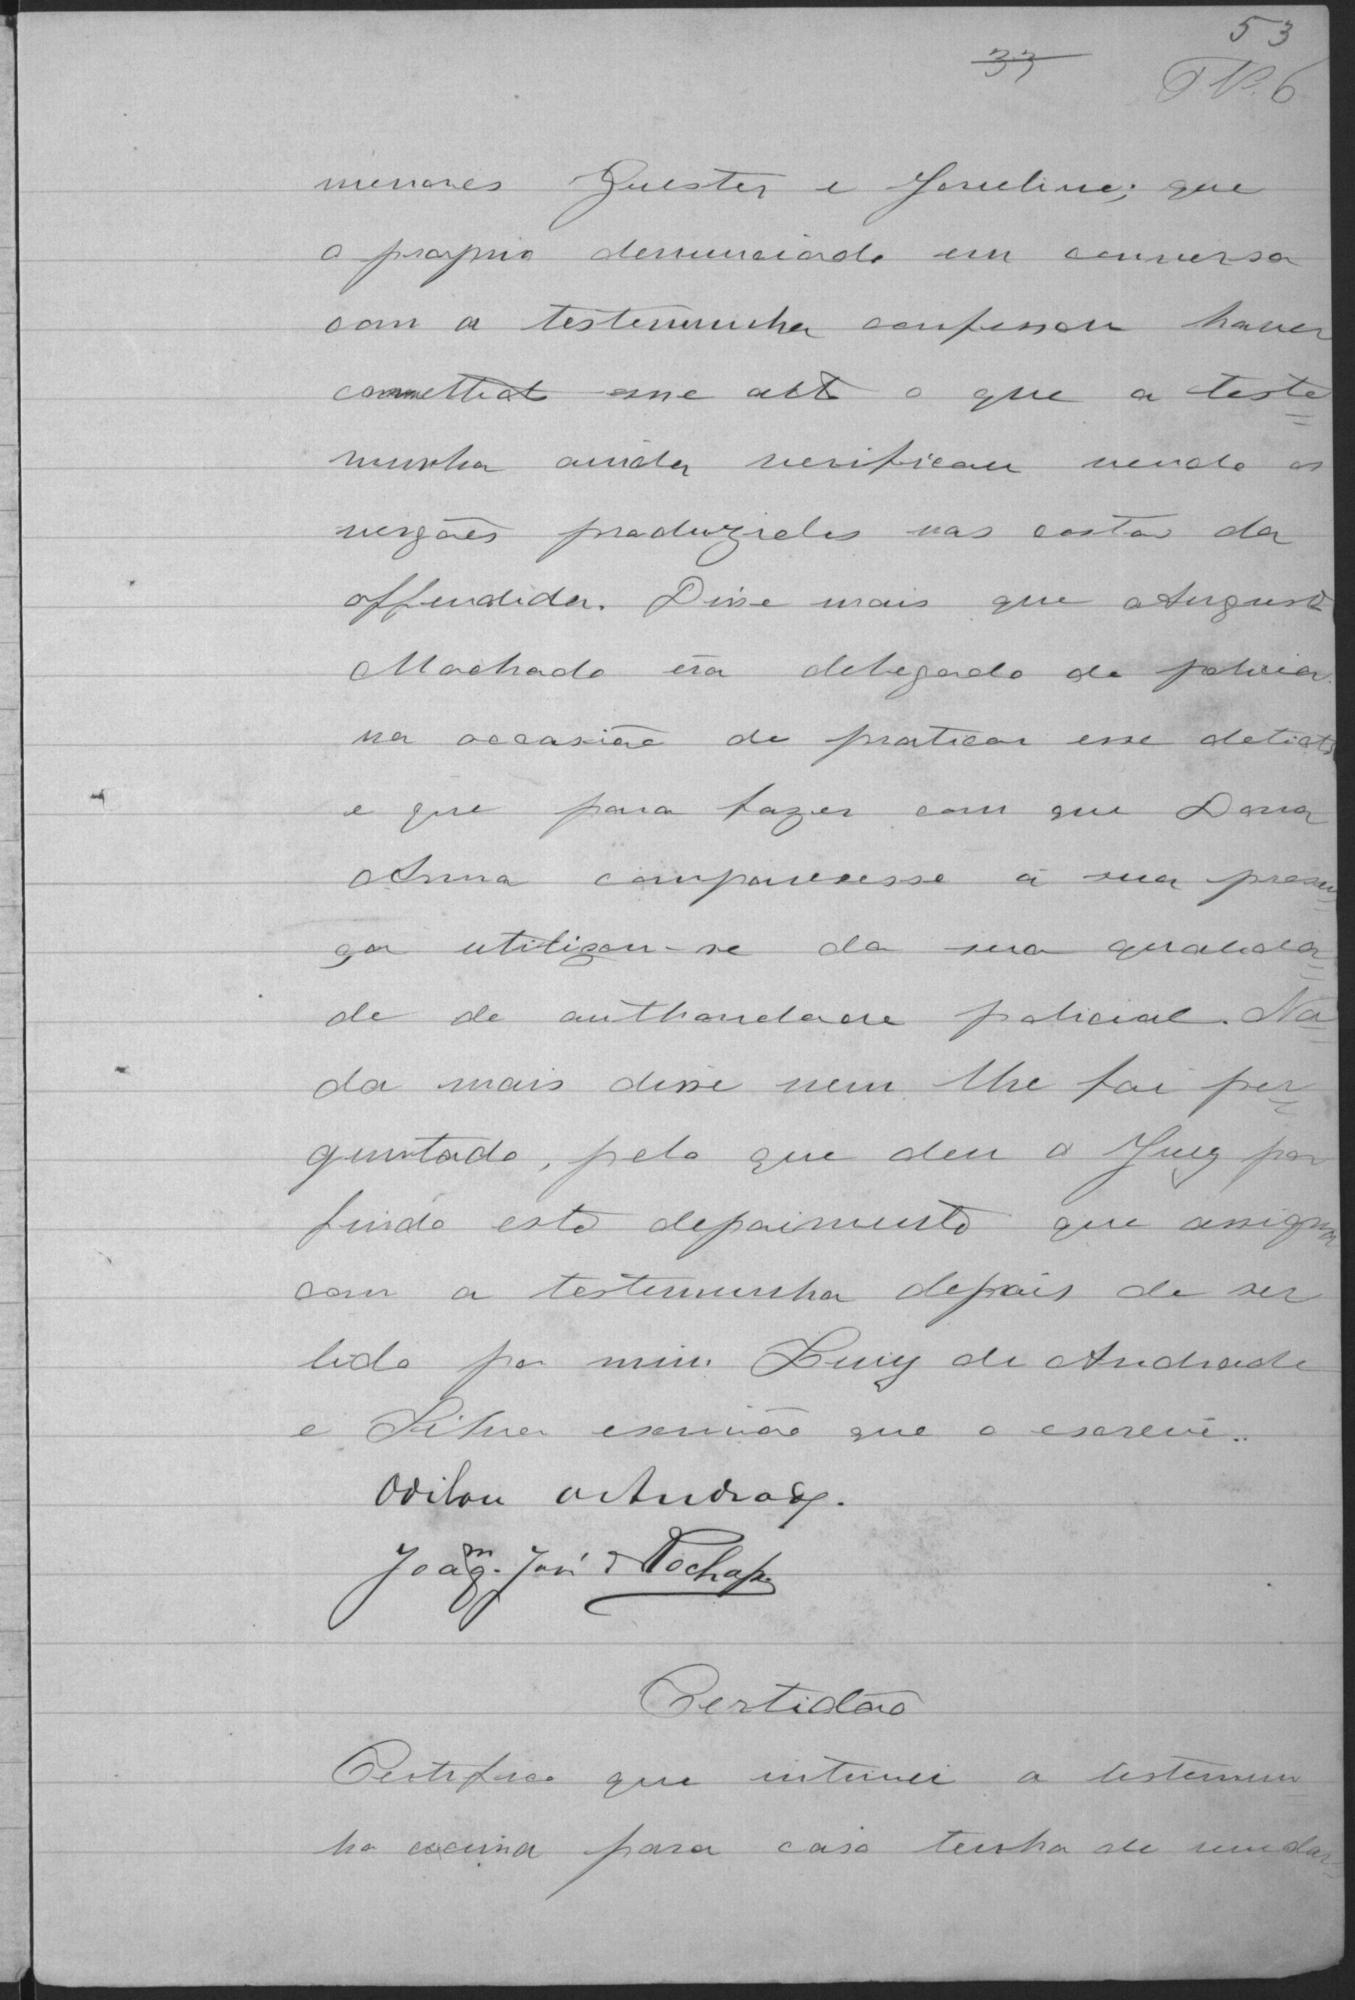 53
33
menores Zuester e Joveline; que
o proprio denunciado em conversa
com a testemunha confessou haver
comettido esse acto o que a teste
munha ainda verificou vendo os
vergões produzidos nas costas da
offendida. Disse mais que Augusto
Machado era delegado de policia
na occasião de praticar esse delicto
e que para fazer com que Dona
Anna comparecesse á sua presen
ça utilizou-se da sua qualida
de de authoridade policial. Na
da mais disse nem lhe foi per
guntado, pelo que deu o Juiz por
findo este depoimento que assigna
com a testemunha depois de ser
lido por mim Luiz de Andrade
e Silva escrivão que o escrevi.
Odilon Andrade.
Joaqm. José
Certidão
Certifico que intimei a testemu
nha acima para caso tenha de mudar